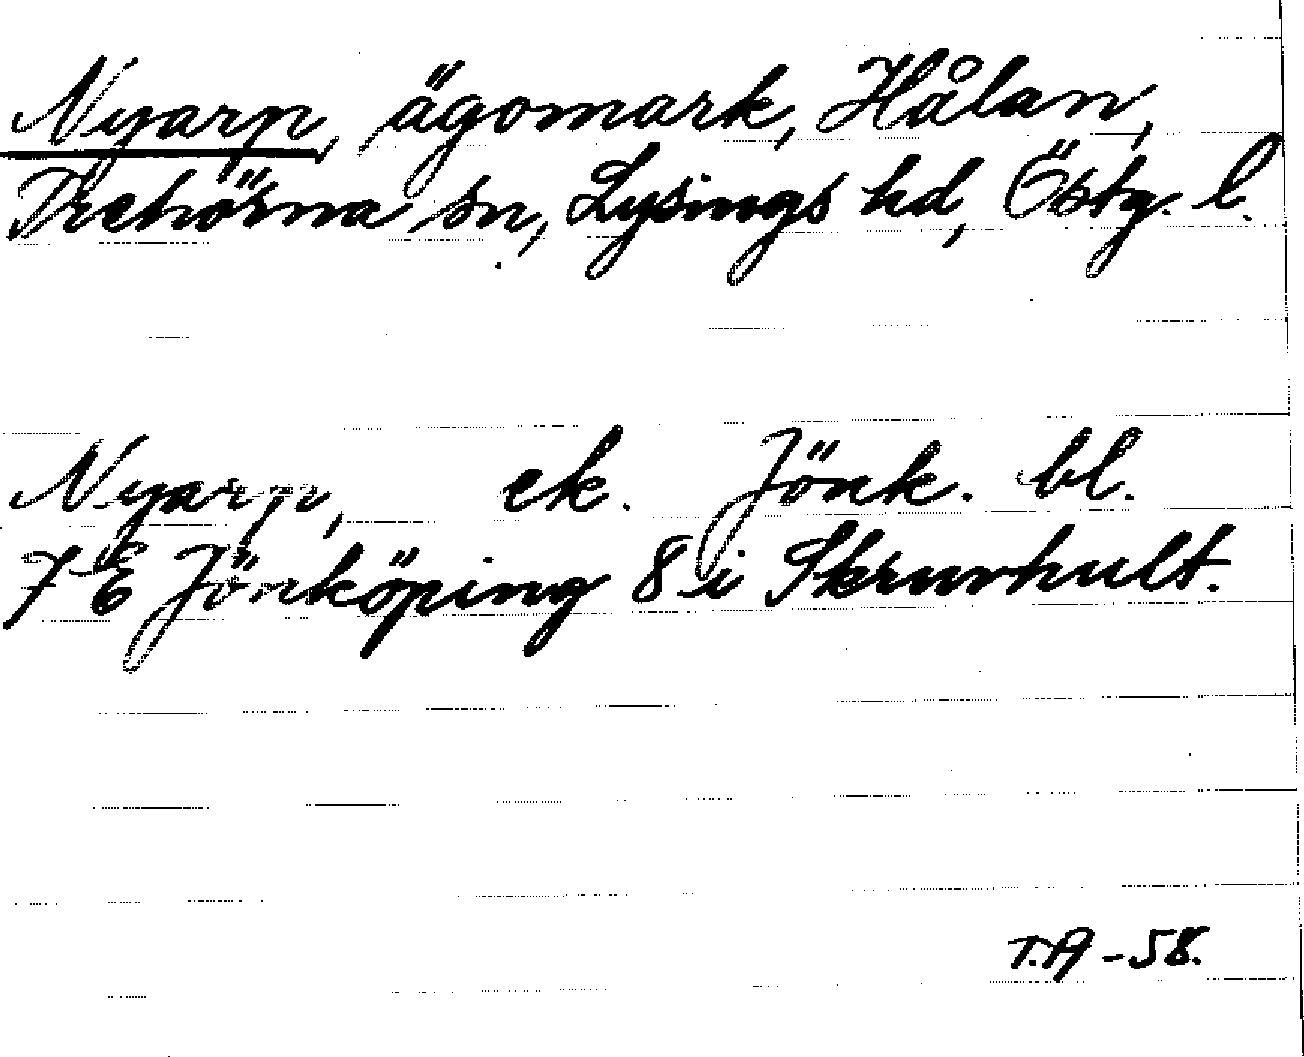 Nyarp, ägomark, Hålan,
Trehörna sn, Lysings hd, Östg. l.
Nyarp, ek. Jönk. bl.
7 E Jönköping 8 i Skruvhult.
T.A -58.